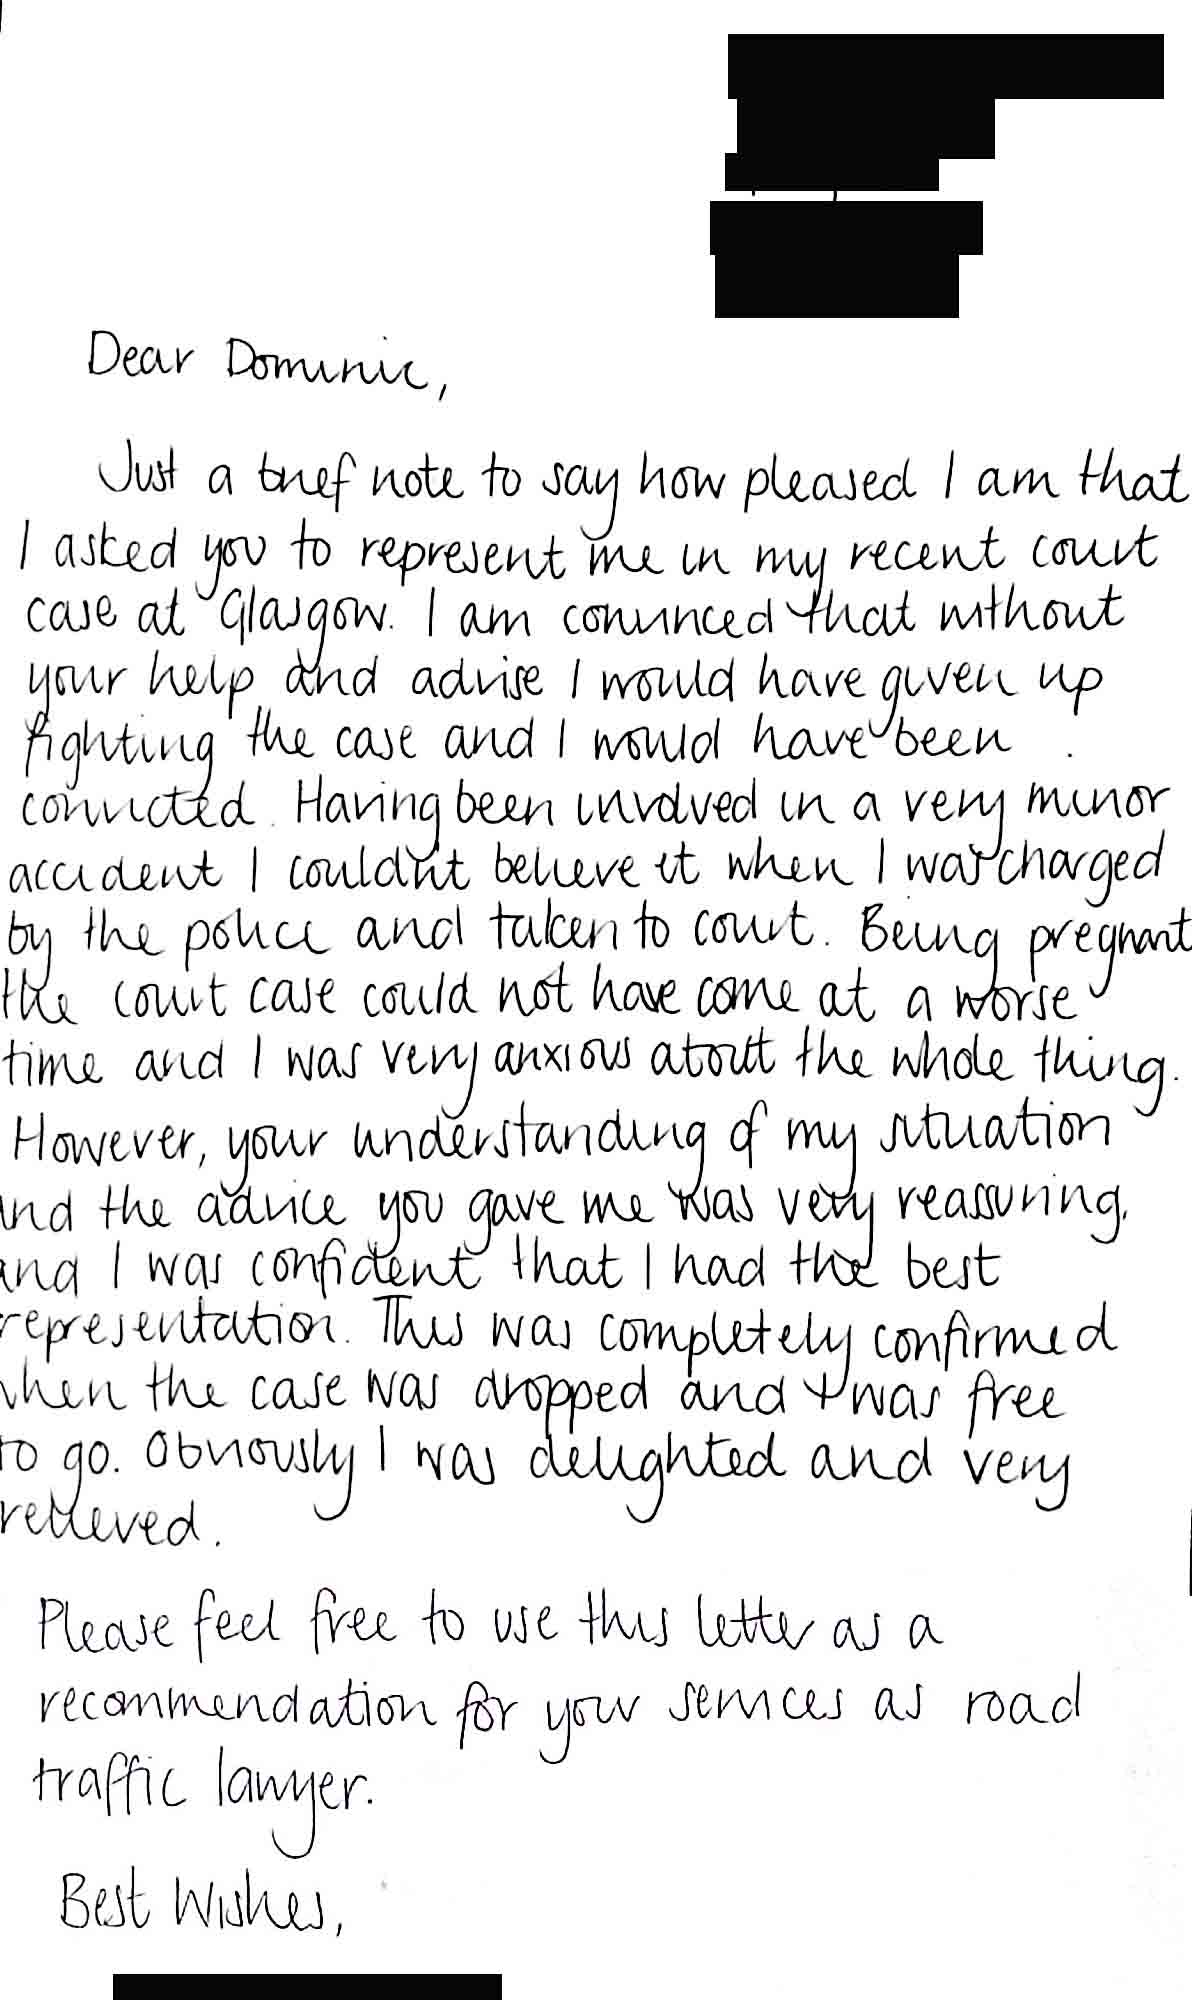 Dear Dominic,
Just a brief note to say how pleased I am that
I asked you to represent me in my recent court
case at Glasgow. I am convinced that without
your help and advise I would have given up
fighting the case and I would have been
convicted. Having been involved in a very minor
accident I couldn't believe it when I was charged
by the police and taken to court. Being pregnant
the court case could not have come at a worse
time and I was very anxious about the whole thing.
However, your understanding of my situation
and the advice you gave me was very reassuring,
and I was confident that I had the best
representation. This was completely confirmed
when the case was dropped and I was free
to go. Obviously I was delighted and very
relieved.
Please feel free to use this letter as a
recommendation for your services as road
traffic lawyer.
Best Wishes,